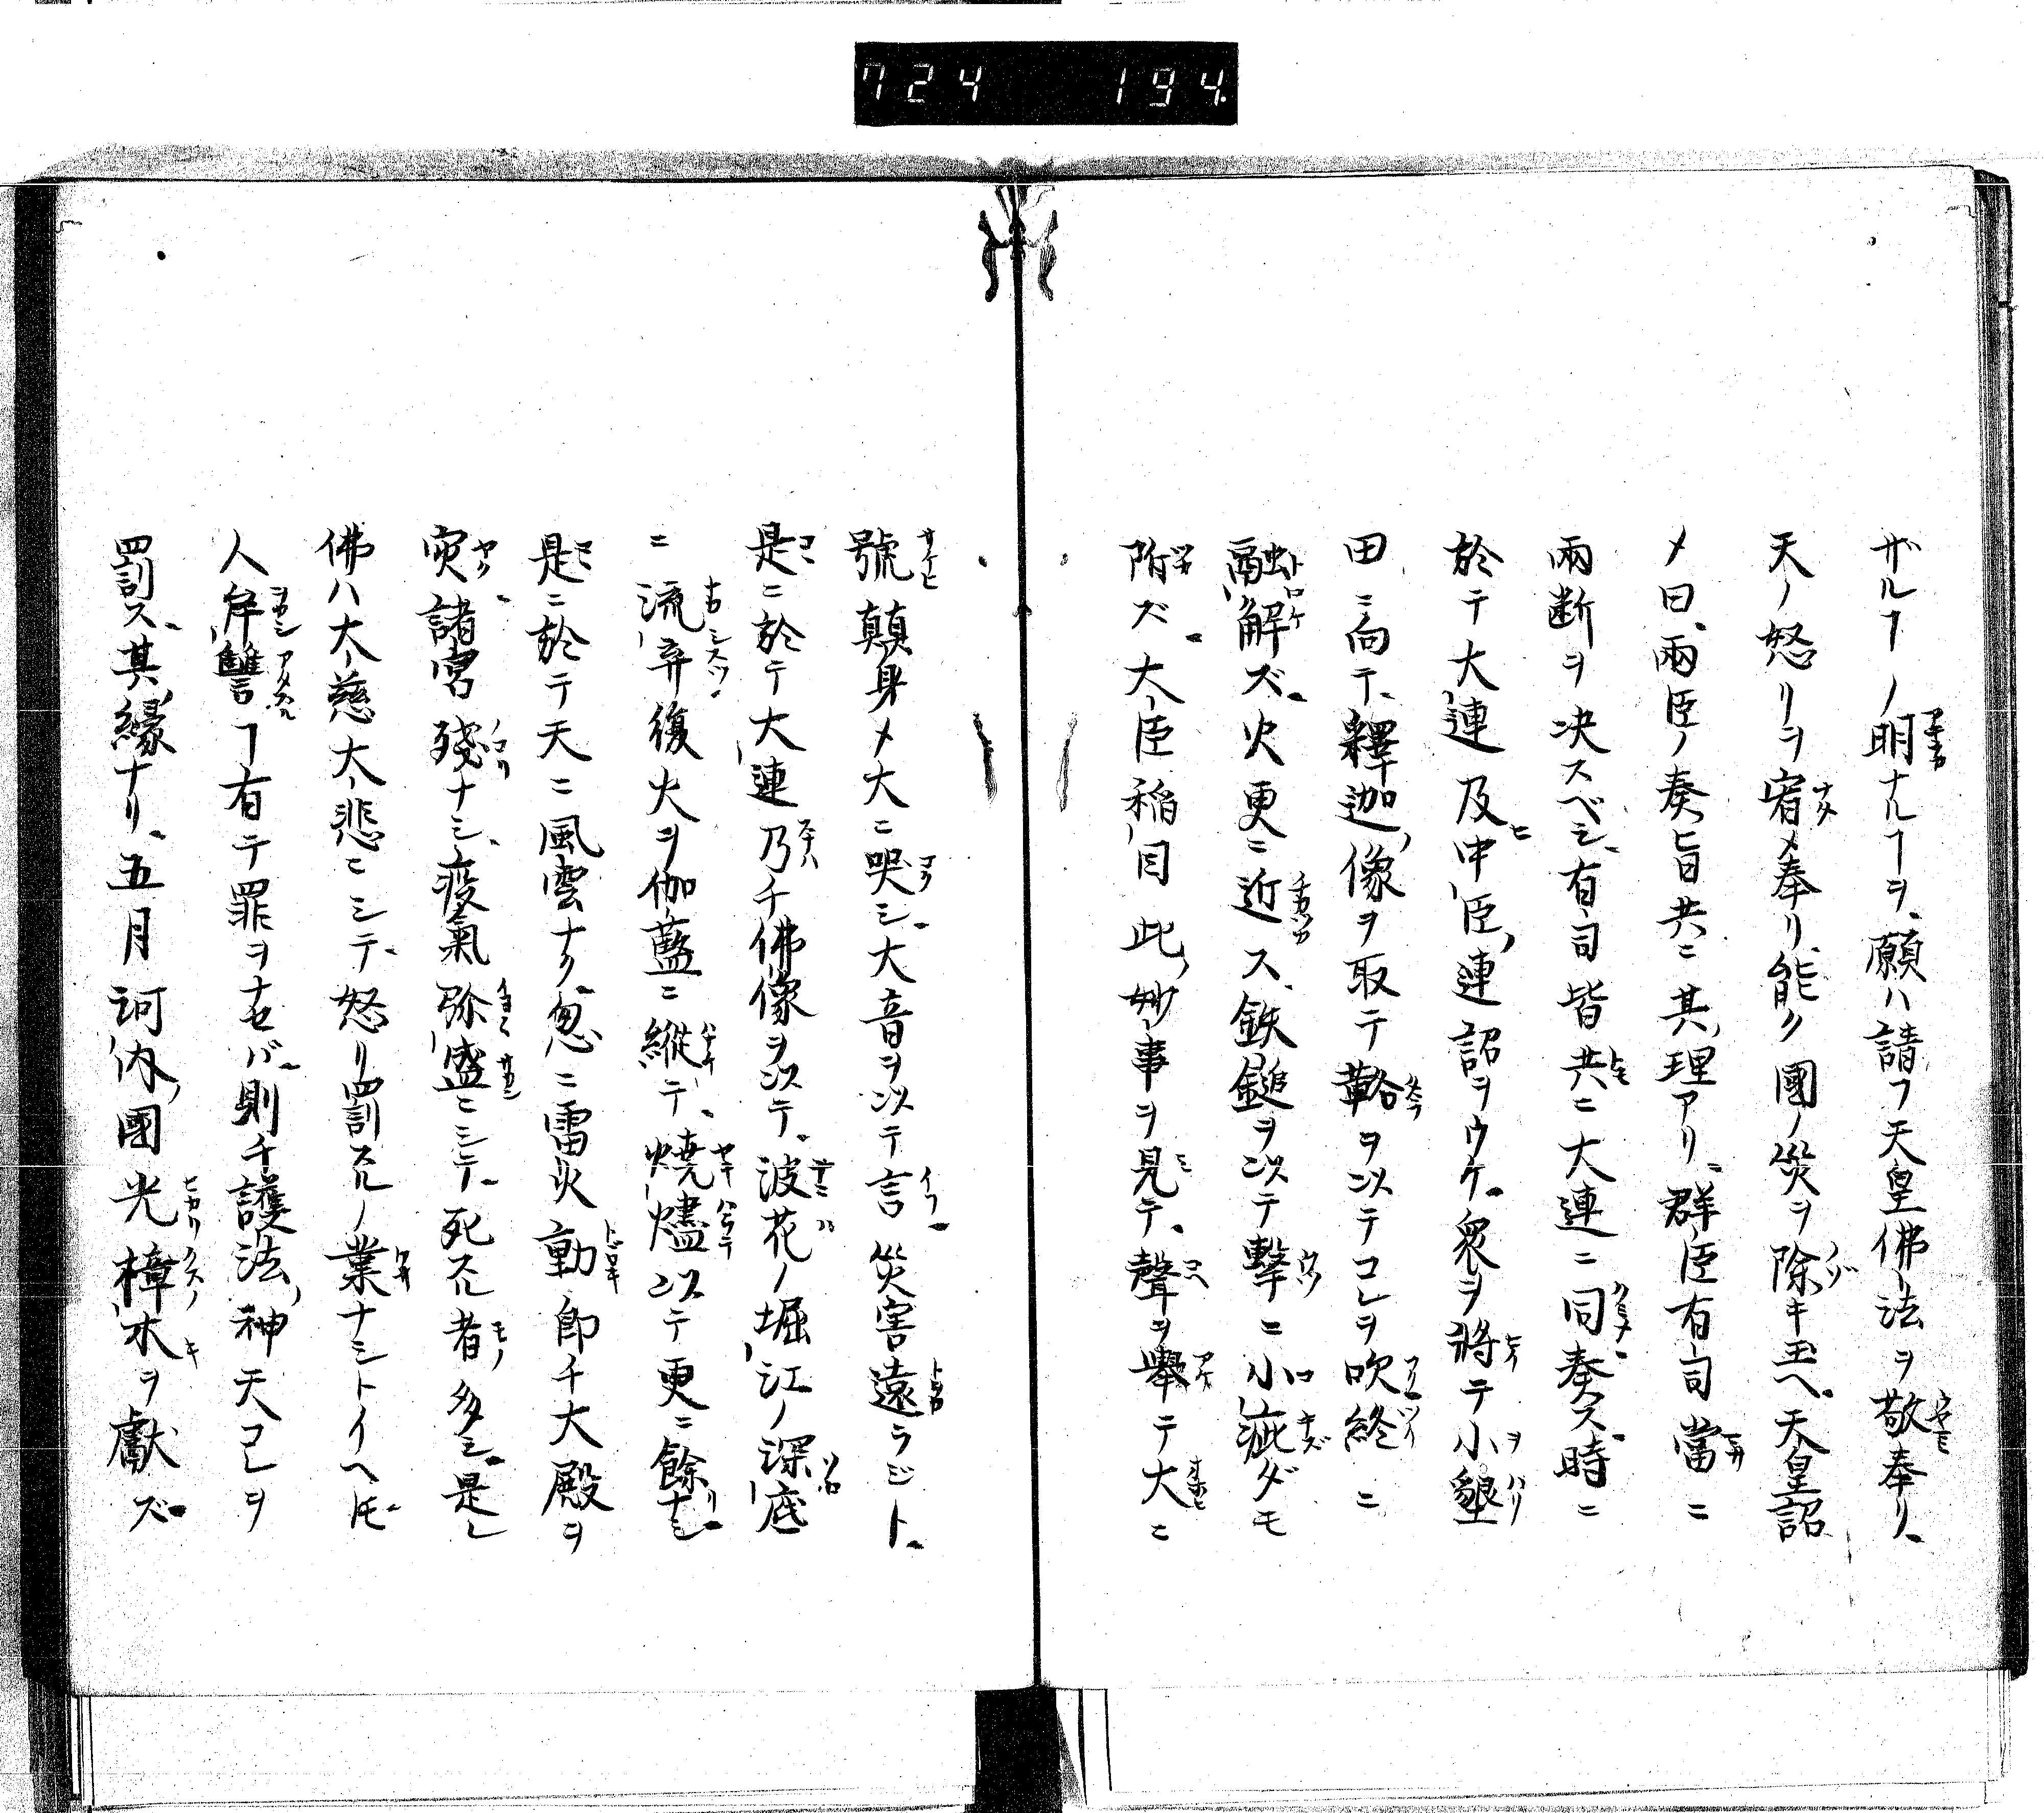 724 194
ザルヿノ明ナルヿヲ、願ハ請フ天皇佛法ヲ敬奉リ、
天ノ怒リヲ宥メ奉リ、能ク國ノ災ヲ除キ玉ヘ。天皇詔
メ曰、兩臣ノ奏旨共ニ其理アリ、群臣有司當ニ
兩断ヲ決スベシ、有司皆共ニ大連ニ同奏ス、時ニ
於テ大連及中臣連詔ヲウケ、衆ヲ將テ小墾
田ニ向テ、釋迦像ヲ取テ鞴ヲ以テコレヲ吹終ニ
融解ズ、火更ニ近ス、鉄鎚ヲ以テ擊ニ小疵ダモ
附ズ、大臣稲目此妙事ヲ見テ、聲ヲ舉テ大ニ
號顛身メ大ニ哭シ、大音ヲ以テ言、災害遠ラジト、
是ニ於テ大連乃チ佛像ヲ以テ、波花ノ堀江ノ深底
ニ流弃復火ヲ伽藍ニ縱テ、焼燼以テ更ニ餘ナシ、
是ニ於テ天ニ風雲ナク、忽ニ雷火動、即チ大殿ヲ
灾、諸宮殘ナシ、疫氣弥盛ニシテ、死スル者多シ、是レ
佛ハ大慈大悲ニシテ、怒リ罰スルノ業ナシトイヘ𪜈、
人讐ヿ有テ罪ヲナセバ、則チ護法神天コレヲ
罰ス、其縁ナリ、五月訶内國光樟木ヲ獻ズ、